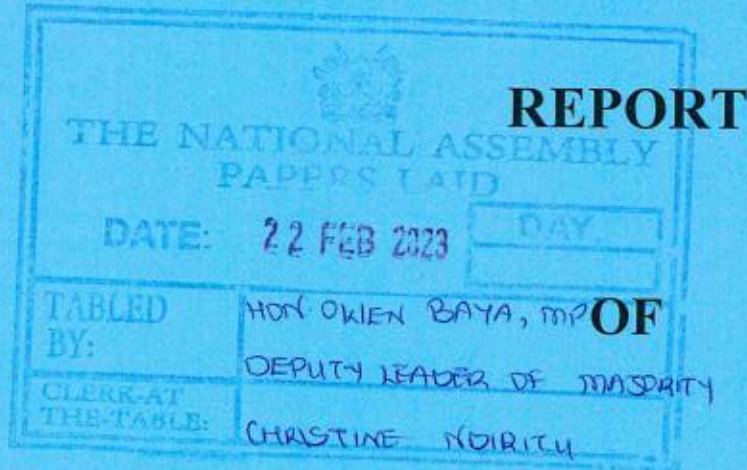 REPORT
THE NATIONAL ASSEMBLY
PAPERS LAID
DATE: 22 FEB 2023 DAY
TABLED BY: HON. OWEN BAYA, MP
OF
DEPUTY LEADER OF MAJORITY
CLERK-AT THE-TABLE: CHRISTINE NDIRITU